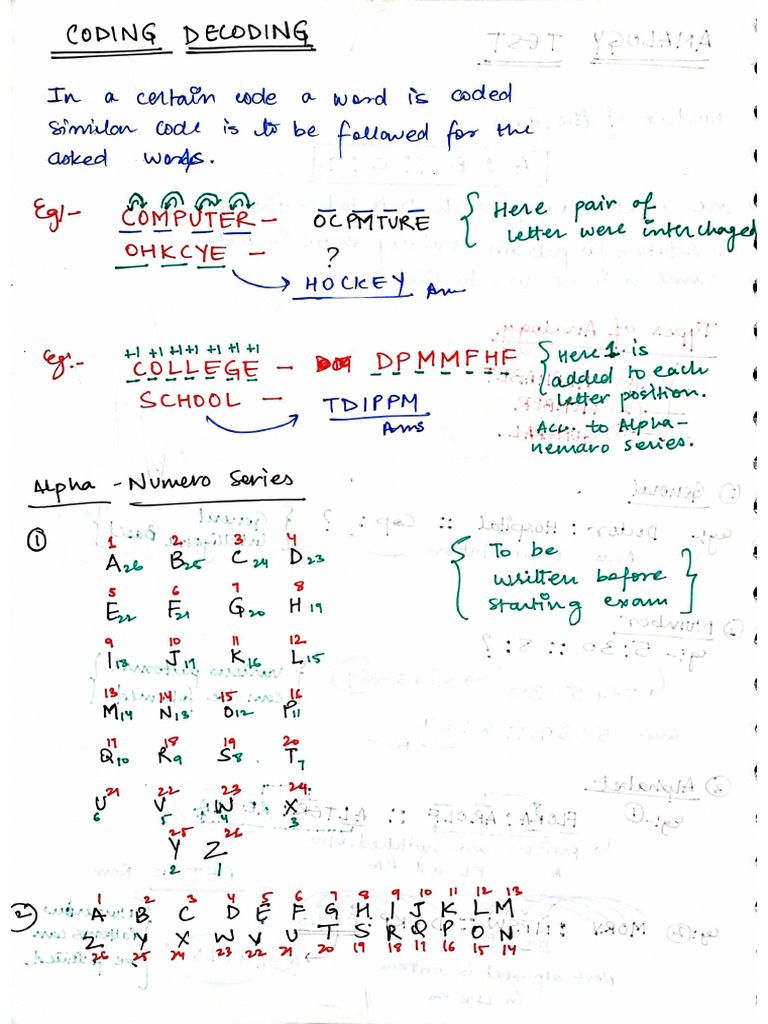 CODING DECODING
In a certain code a word is coded
similar code is to be followed for the
asked words.
Eg:- COMPUTER - OCPMTURE { Here pair of
letter were interchaged
OHKCYE - ?
HOCKEY Ans
+1 +1 +1 +1 +1 +1 +1
Eg:- COLLEGE - DPMMFHF { Here 1 is
added to each
letter position.
SCHOOL - TDIPPM
Ans
Acc. to Alpha-
nemaro series.
Alpha - Numero Series
① 1 2 3 4
A26 B25 C24 D23
{ To be
written before
starting exam }
5 6 7 8
E22 F21 G20 H19
9 10 11 12
I18 J17 K16 L15
13 14 15 16
M14 N13 O12 P11
17 18 19 20
Q10 R9 S8 T7
21 22 23 24
U V W X
6 5 4 3
25 26
Y Z
2 1
② 1 2 3 4 5 6 7 8 9 10 11 12 13
A B C D E F G H I J K L M
Z Y X W V U T S R Q P O N
26 25 24 23 22 21 20 19 18 17 16 15 14